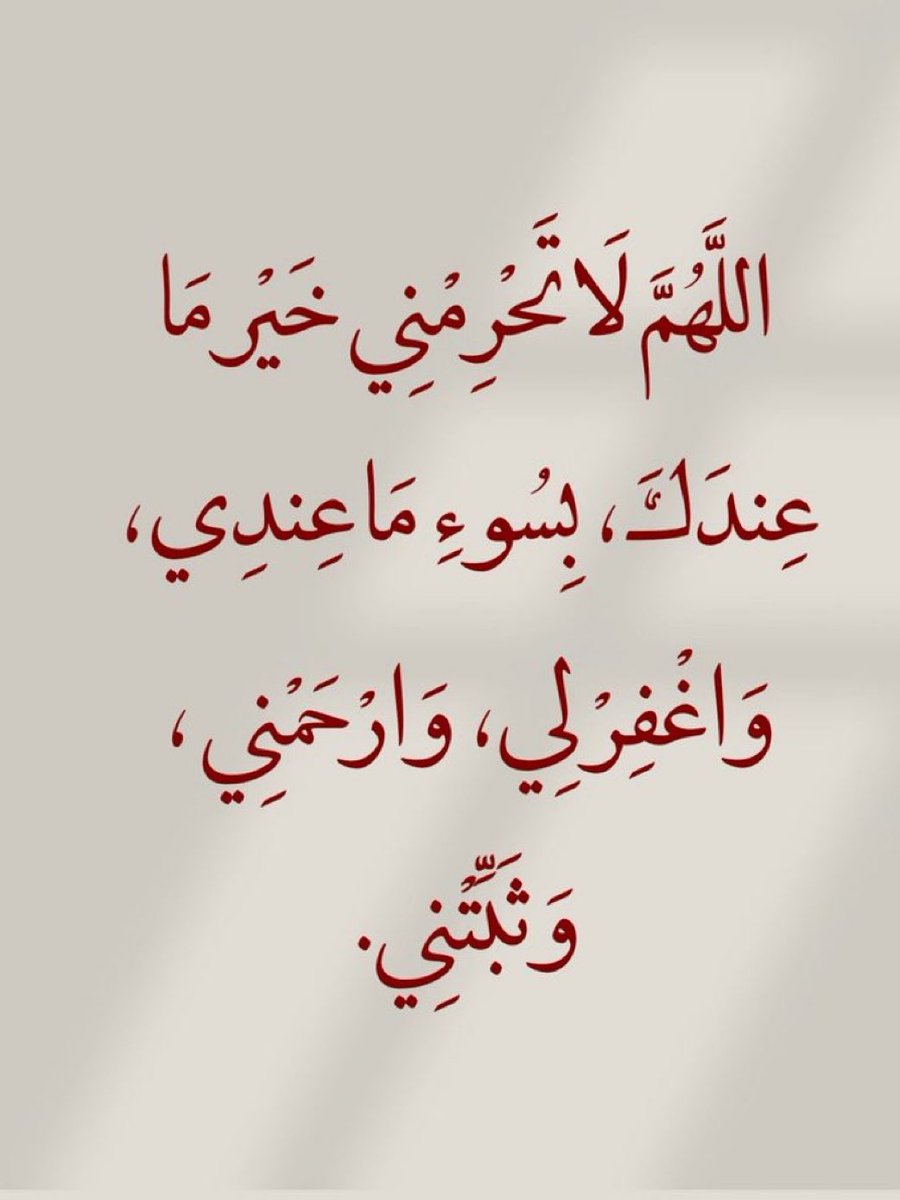 اللَّهُمَّ لَا تَحْرِمْنِي خَيْر مَا
عِندَكَ، بِسُوءِ مَا عِندِي،
وَاغْفِرْ لِي، وَارْحَمْنِي،
وَثَبِّتْنِي.